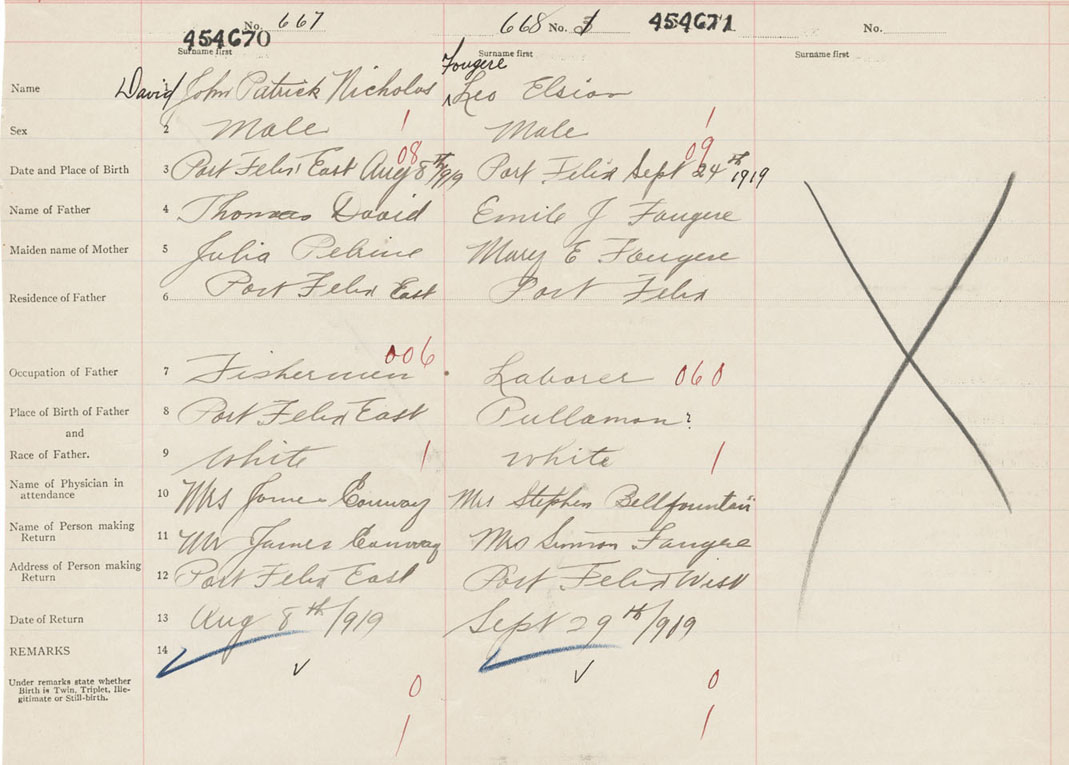 No. 667 668 No. 454671 No.
454670
Surname first Surname first Surname first
Fougere
Name 1 David John Patrick Nicholas Leo Elsion
Sex 2 Male 1 Male 1
08 09
Date and Place of Birth 3 Port Felix East Aug 8th 1919 Port Felix Sept 24th 1919
Name of Father 4 Thomas David Emile J Fougere
Maiden name of Mother 5 Julia Pelrine Mary E Fougere
Residence of Father 6 Port Felix East Port Felix
006
Occupation of Father 7 Fishermen Laborer 060
Place of Birth of Father 8 Port Felix East Pullamon ?
and
Race of Father. 9 White 1 White 1
Name of Physician in
attendance 10 Mrs James Conway Mrs Stephen Bellfountain
Name of Person making
Return 11 Mr James Conway Mrs Simon Fougere
Address of Person making
Return 12 Port Felix East Port Felix West
Date of Return 13 Aug 8th/1919 Sept 29th/1919
REMARKS 14
Under remarks state whether
Birth is Twin, Triplet, Ille-
gitimate or Still-birth.
0 0
1 1